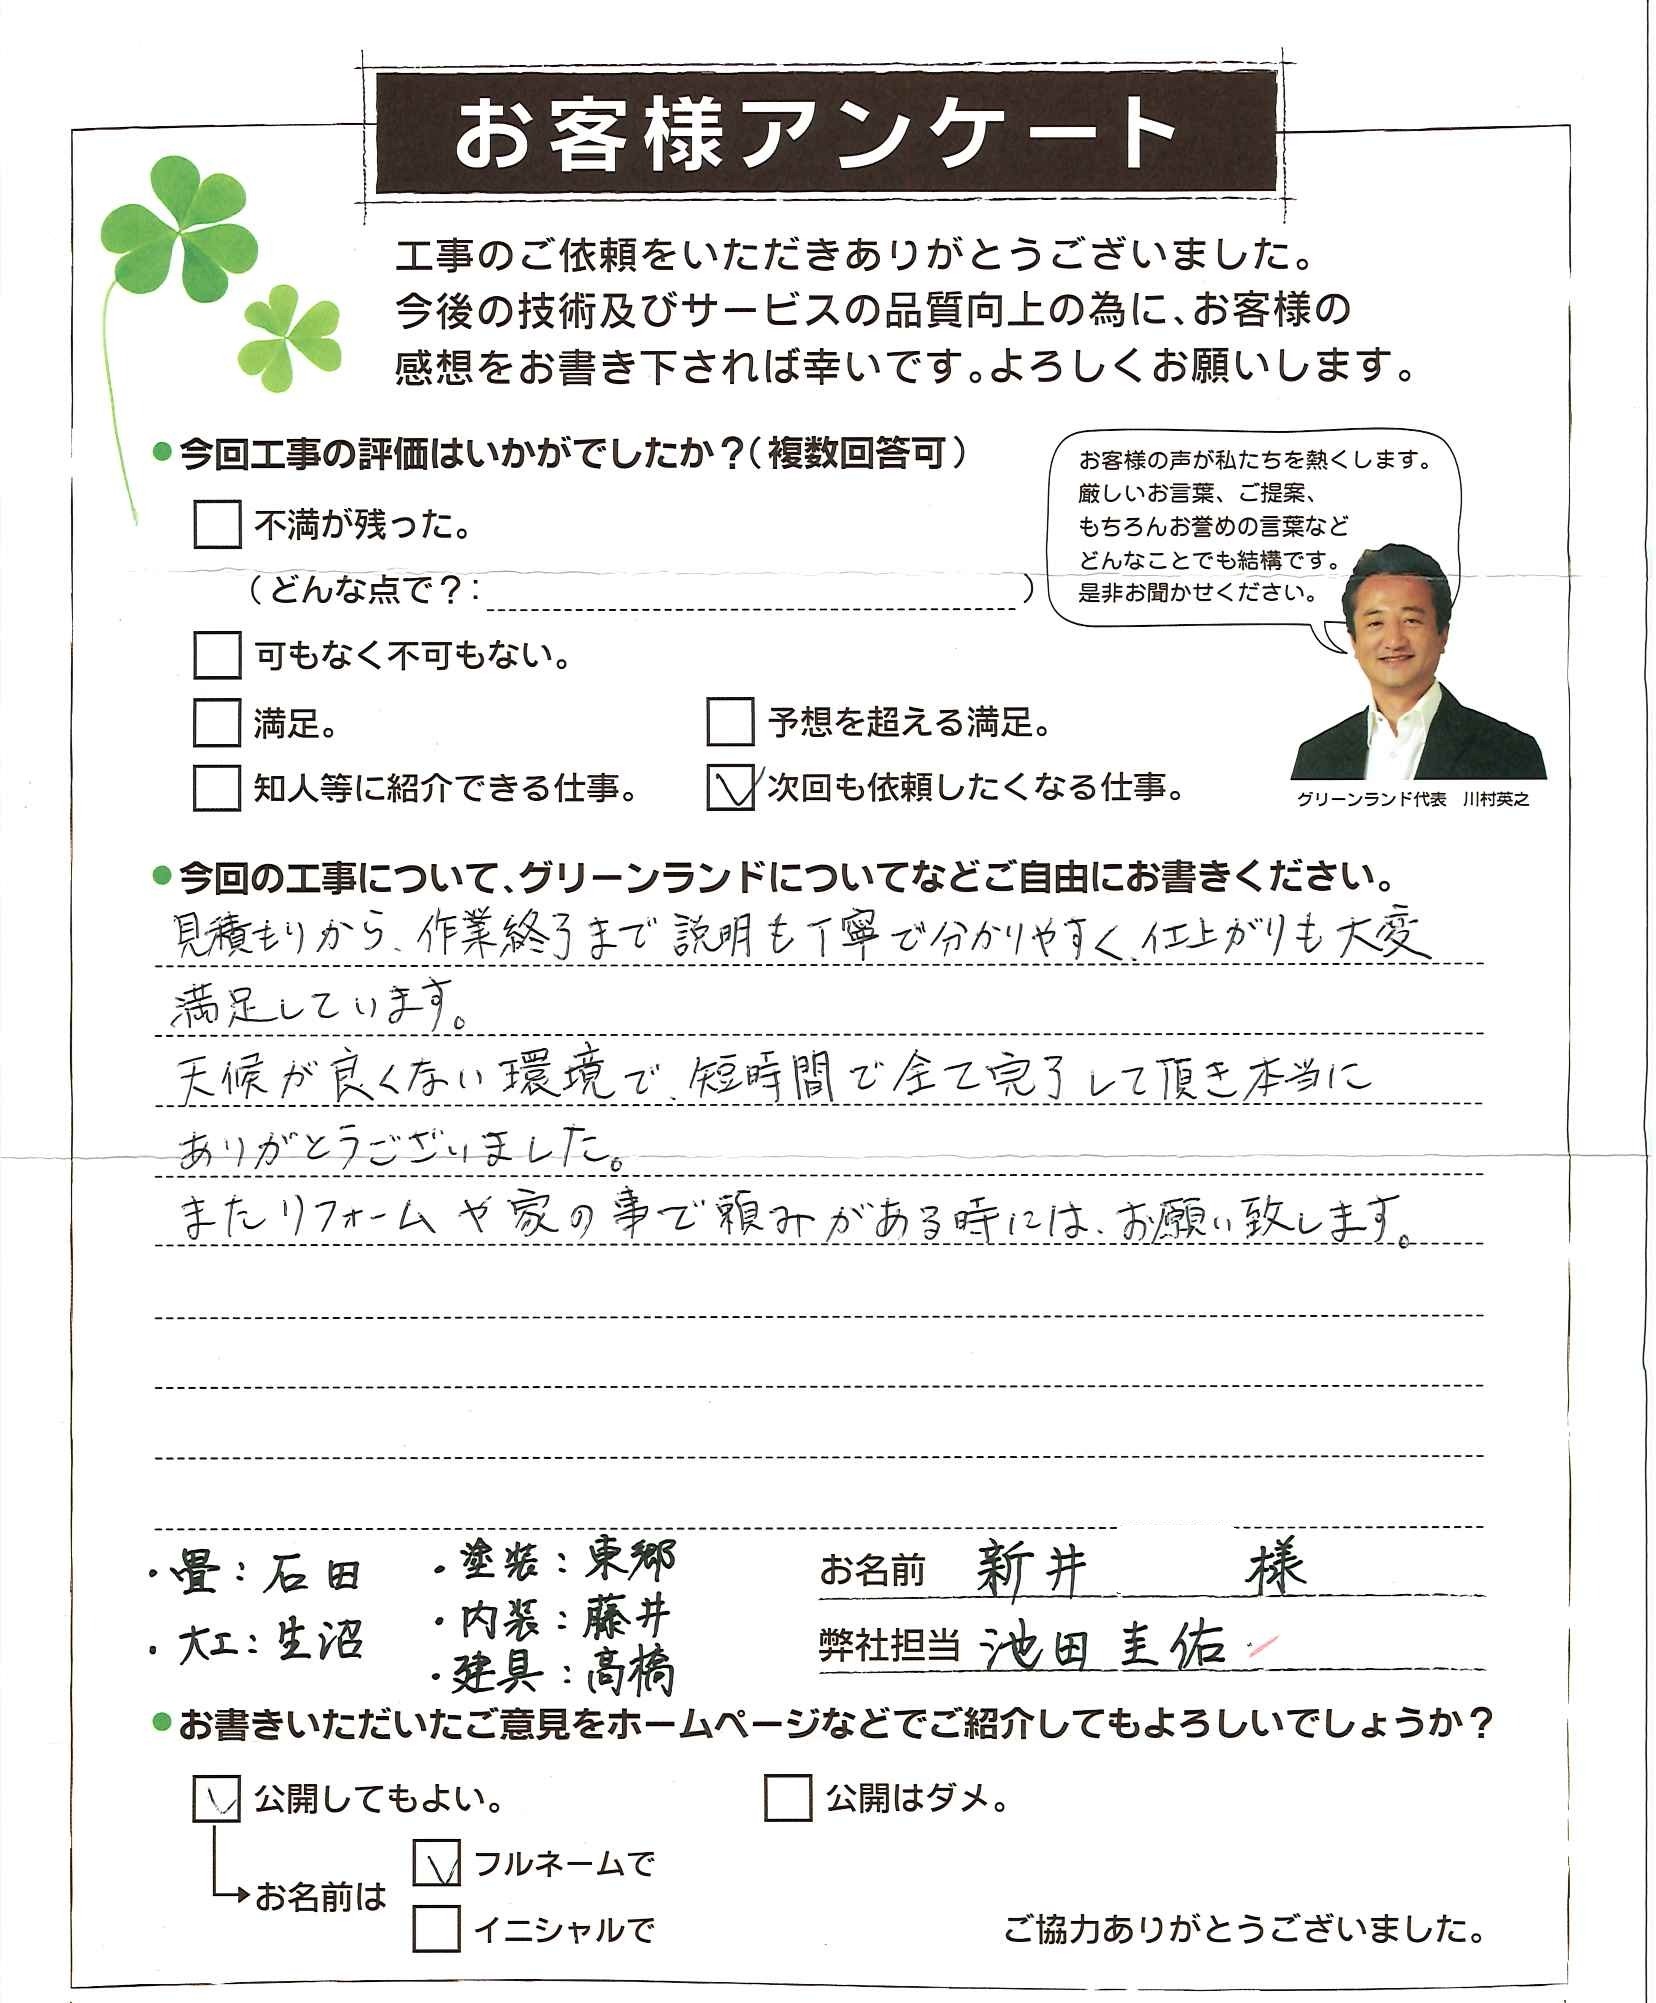 お客様アンケート
工事のご依頼をいただきありがとうございました。
今後の技術及びサービスの品質向上の為に、お客様の
感想をお書き下されば幸いです。よろしくお願いします。
●今回工事の評価はいかがでしたか？（複数回答可）
不満が残った。
（どんな点で？： ）
可もなく不可もない。
満足。
予想を超える満足。
知人等に紹介できる仕事。
次回も依頼したくなる仕事。
お客様の声が私たちを熱くします。
厳しいお言葉、ご提案、
もちろんお誉めの言葉など
どんなことでも結構です。
是非お聞かせください。
グリーンランド代表　川村英之
●今回の工事について、グリーンランドについてなどご自由にお書きください。
見積もりから、作業終了まで説明も丁寧で分かりやすく、仕上がりも大変
満足しています。
天候が良くない環境で、短時間で全て完了して頂き本当に
ありがとうございました。
またリフォームや家の事で頼みがある時には、お願い致します。
・畳：石田
・大工：生沼
・塗装：東郷
・内装：藤井
・建具：高橋
お名前　新井　様
弊社担当　池田圭佑
●お書きいただいたご意見をホームページなどでご紹介してもよろしいでしょうか？
公開してもよい。
公開はダメ。
お名前は
フルネームで
イニシャルで
ご協力ありがとうございました。